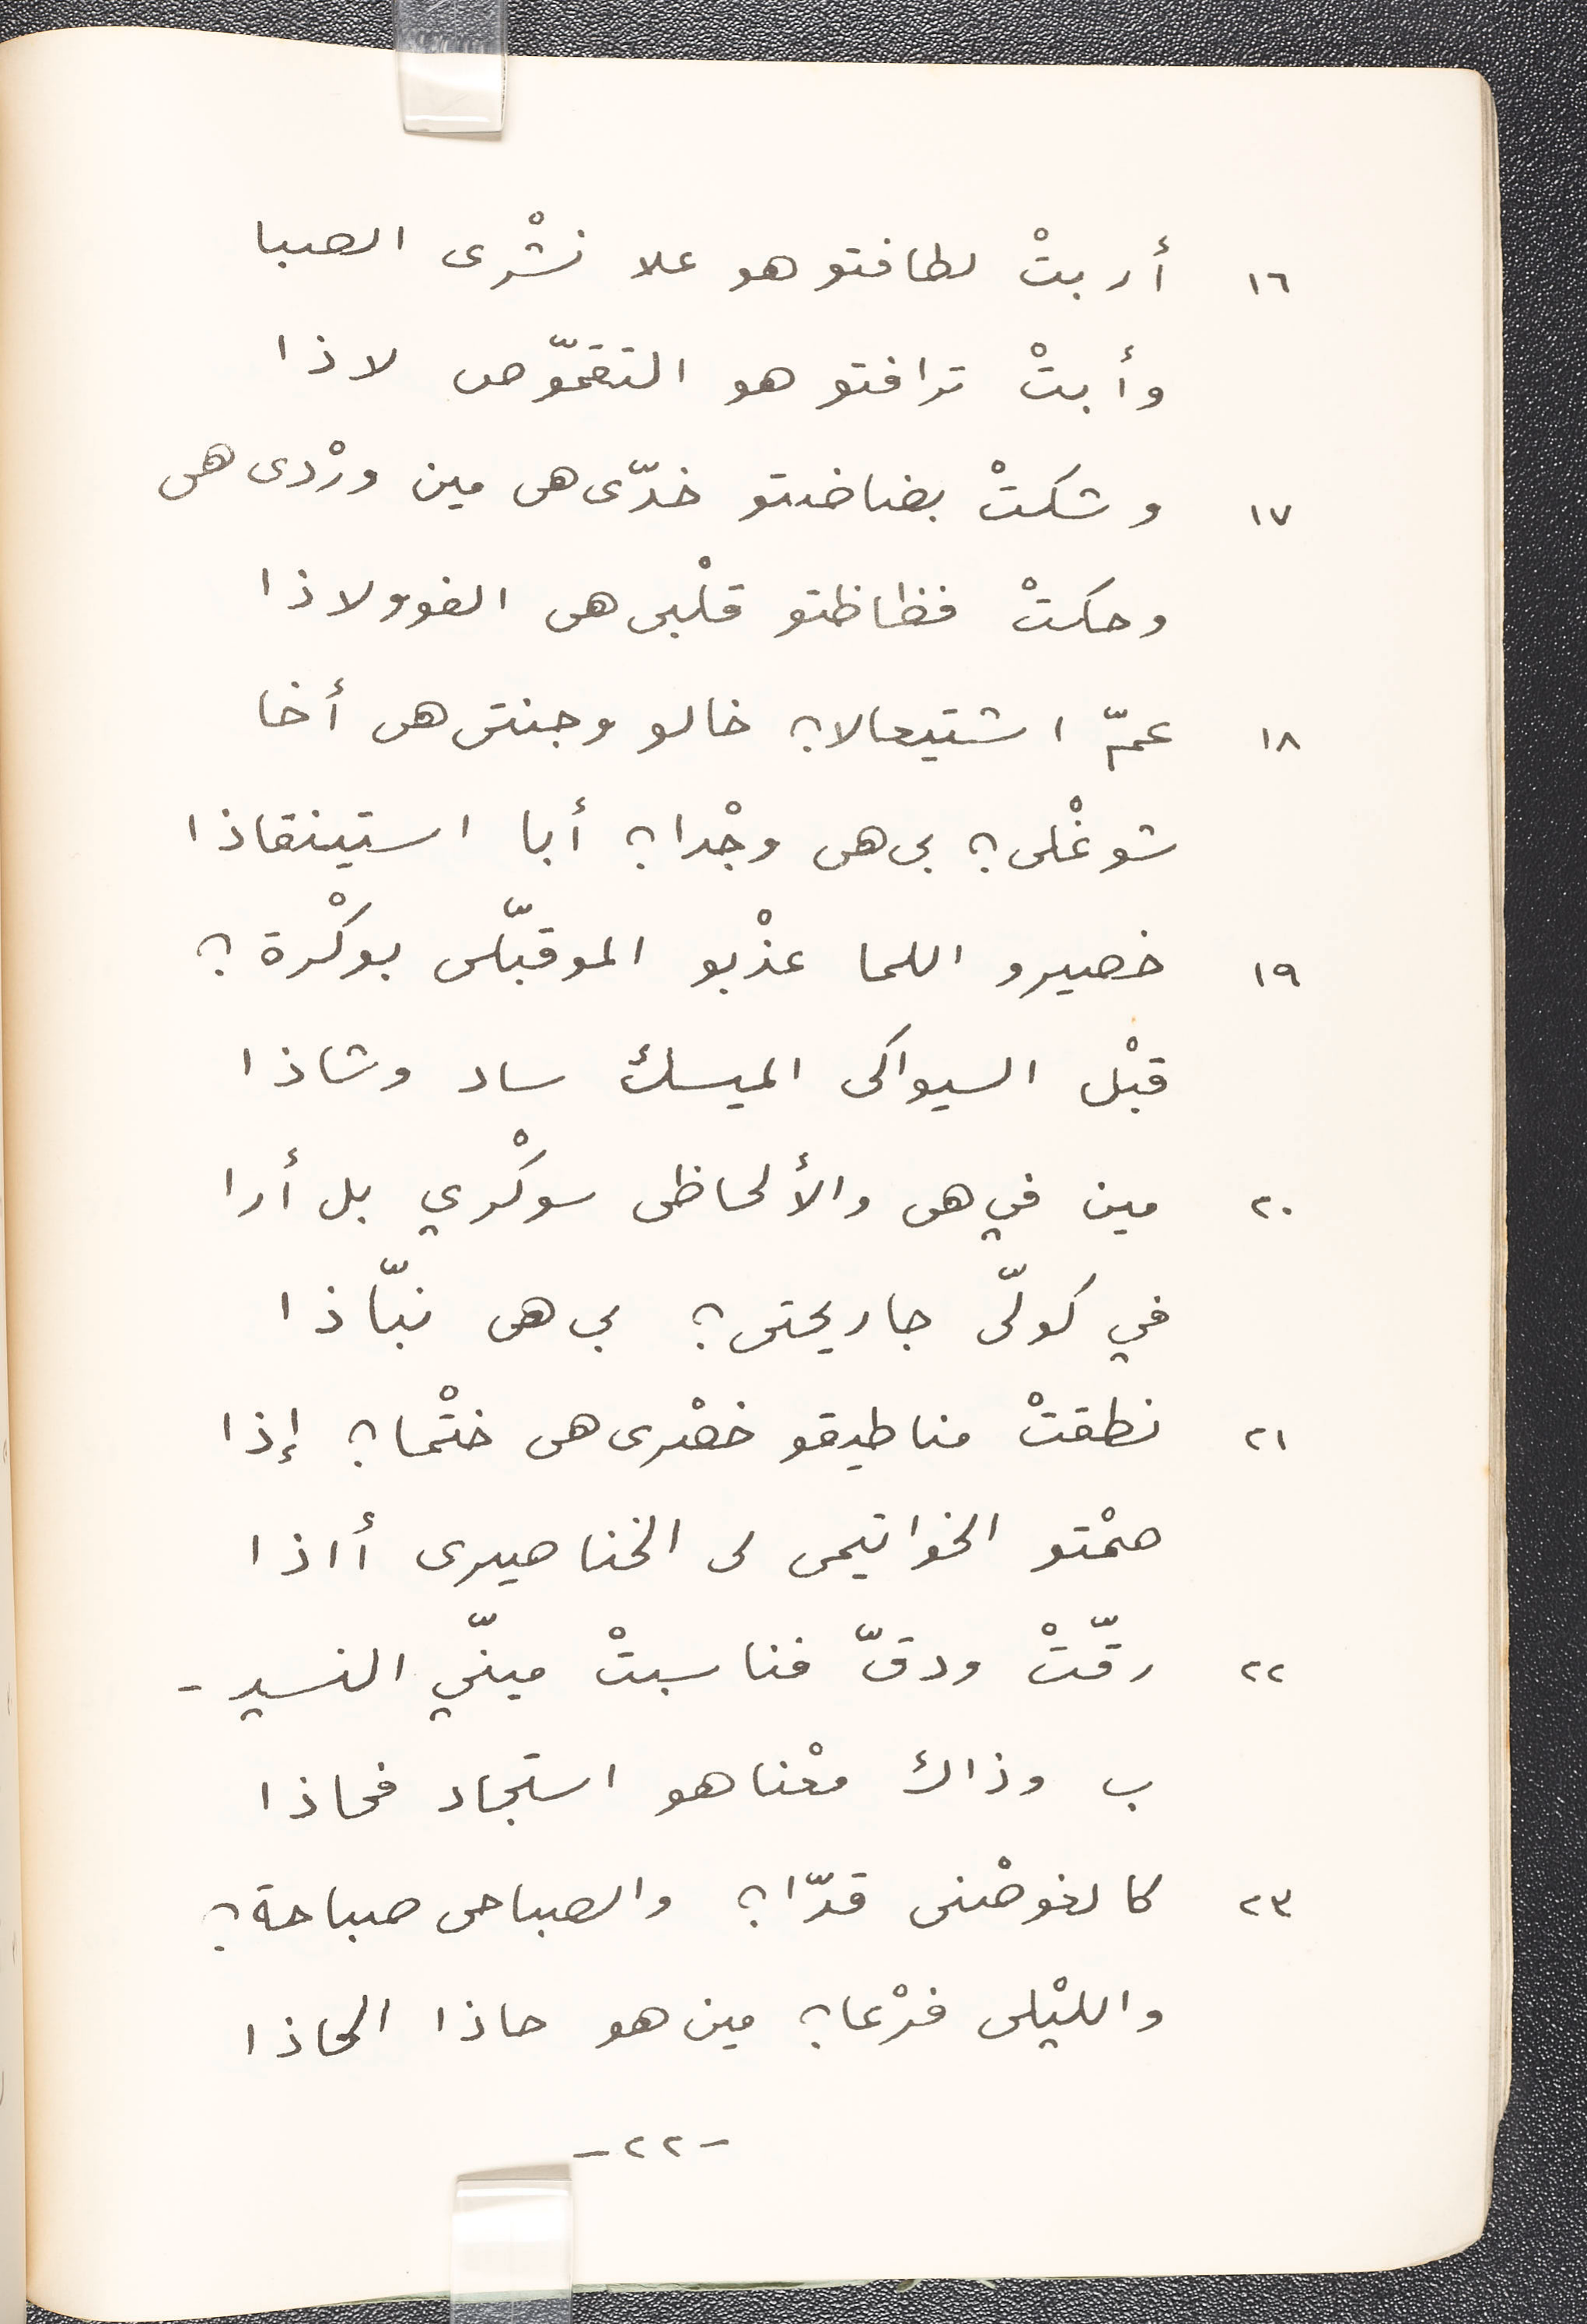 ١٦ أربتْ لطافتو هو علا نشْرى الصبا
وأبتْ ترافتو هو التقمّوص لاذا
١٧ وشكتْ بضاضتو خدّى هى مين ورْدى هى
وحكتْ فظاظتو قلْبى هى الفوولاذا
١٨ عمّ اشتيعالا؟ خالو وجنتى هى أخا
شوغْلى؟ بى هى وجْدا؟ أبا استينقاذا
١٩ خصيرو اللما عذْبو الموقبّلى بوكْرة؟
قبْل السيواكى الميسك ساد وشاذا
٢٠ مين في هى والألحاظى سوكْري بل أرا
في كولّى جاريحتى؟ بى هى نبّاذا
٢١ نطقتْ مناطيقو خصْرى هى ختْما؟ إذا
صمْتو الخواتيمى لى الخناصيرى أاذا
٢٢ رقّتْ ودقّ فناسبتْ مينّي النسيـ -
ب وذاك معْناهو استجاد فحاذا
٢٣ كالغوصْنى قدّا؟ والصباحى صباحة؟
والليْلى فرْعا؟ مين هو حاذا الحاذا
-٢٢-